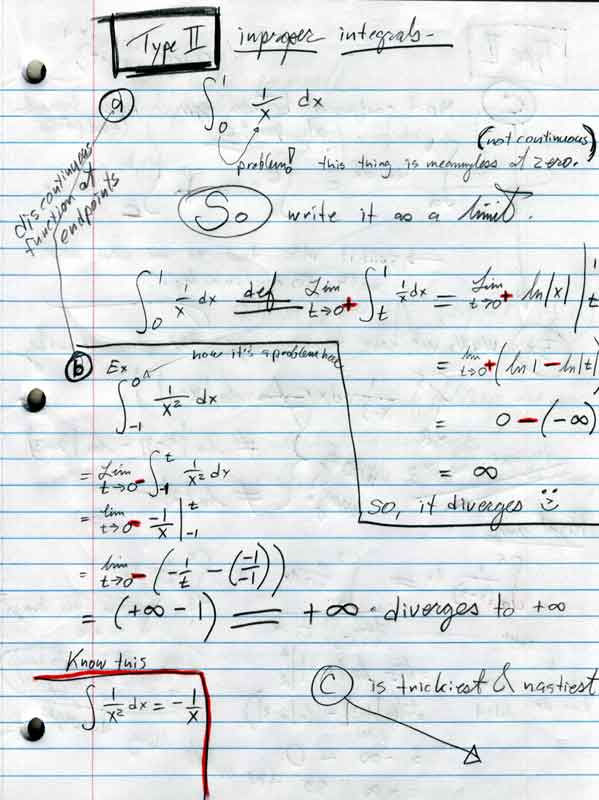 Type II improper integrals-
a ∫₀¹ 1/x dx
problem! this thing is meaningless at zero.
(not continuous)
discontinuous
function at
endpoints
So write it as a limit.
∫₀¹ 1/x dx def Lim t→0+ ∫ₜ¹ 1/x dx = Lim t→0+ ln|x| |ₜ¹
= lim t→0+ (ln 1 - ln|t|)
= 0 - (-∞)
= ∞
So, it diverges
b Ex now it's a problem here
∫₋₁⁰ 1/x² dx
= Lim t→0- ∫₋₁ᵗ 1/x² dx
= lim t→0- -1/x |₋₁ᵗ
= lim t→0- (-1/t - (-1/-1))
= (+∞ - 1) = +∞ · diverges to +∞
Know this
∫ 1/x² dx = - 1/x
C is trickiest & nastiest